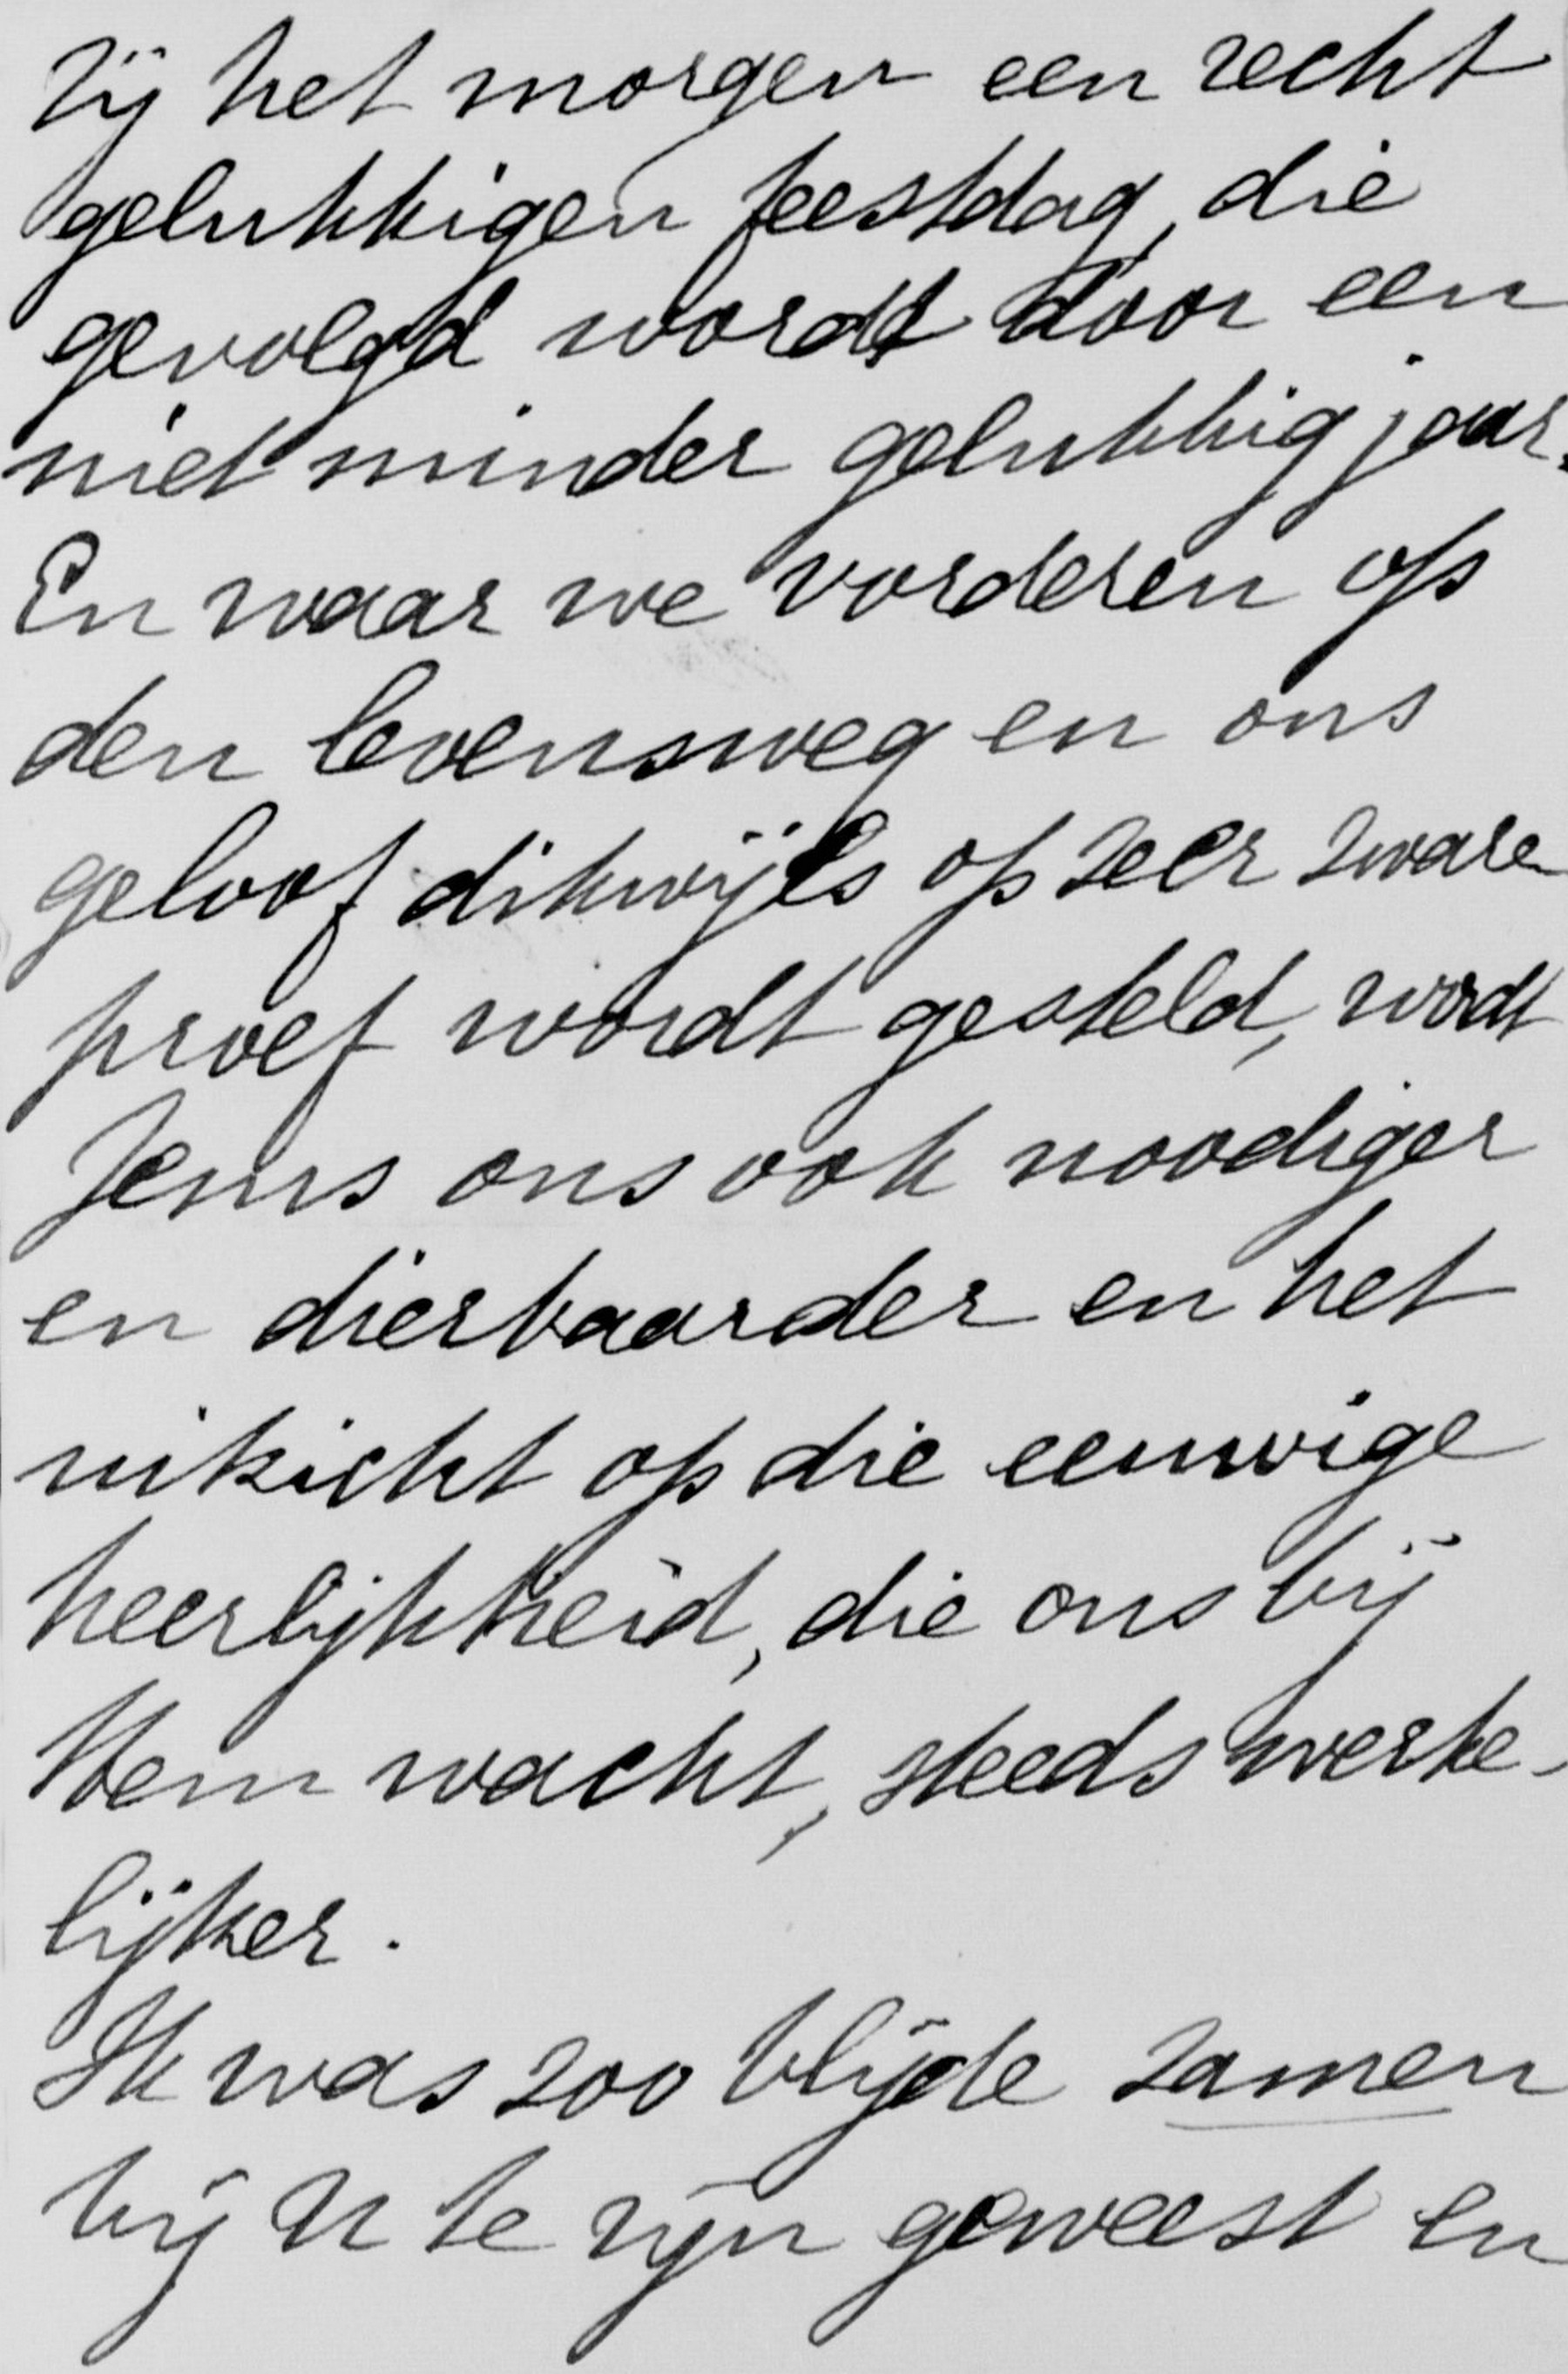 Zij het morgen een recht
gelukkigen feestdag, die
gevolgd wordt door een
niet minder gelukkig jaar.
En waar we vorderen op
den levensweg en ons
geloof dikwijls op zeer zware
proef wordt gesteld, wordt
Jezus ons ook noodiger
en dierbaarder en het
uitzicht op die eeuwige
heerlijkheid, die ons bij
Hem wacht, steeds werke-
lijker.
Ik was zoo blijde zamen
bij U te zijn geweest en